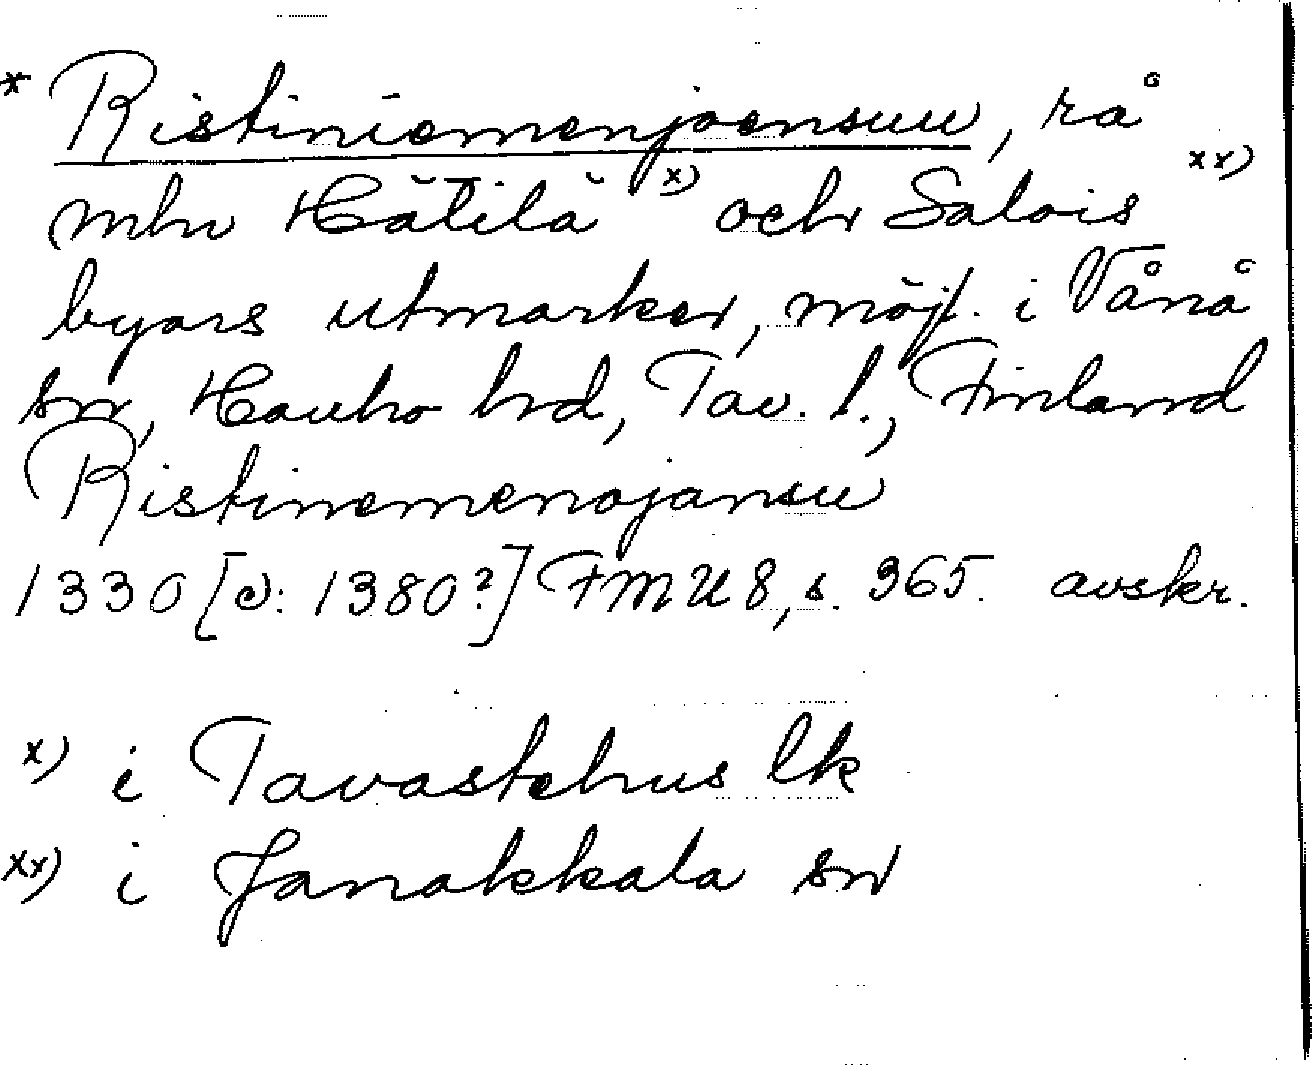 * Ristiniemenjoensuu, rå
mln Hätilä x) och Salois xx)
byars utmarker, möjl. i Vånå
sn, Hauho hd, Tav. l., Finland
Ristinemenojansu
1330 [ɔ: 1380?] FMU 8, s. 365. avskr.
x) i Tavastehus lk
xx) i Janakkala sn